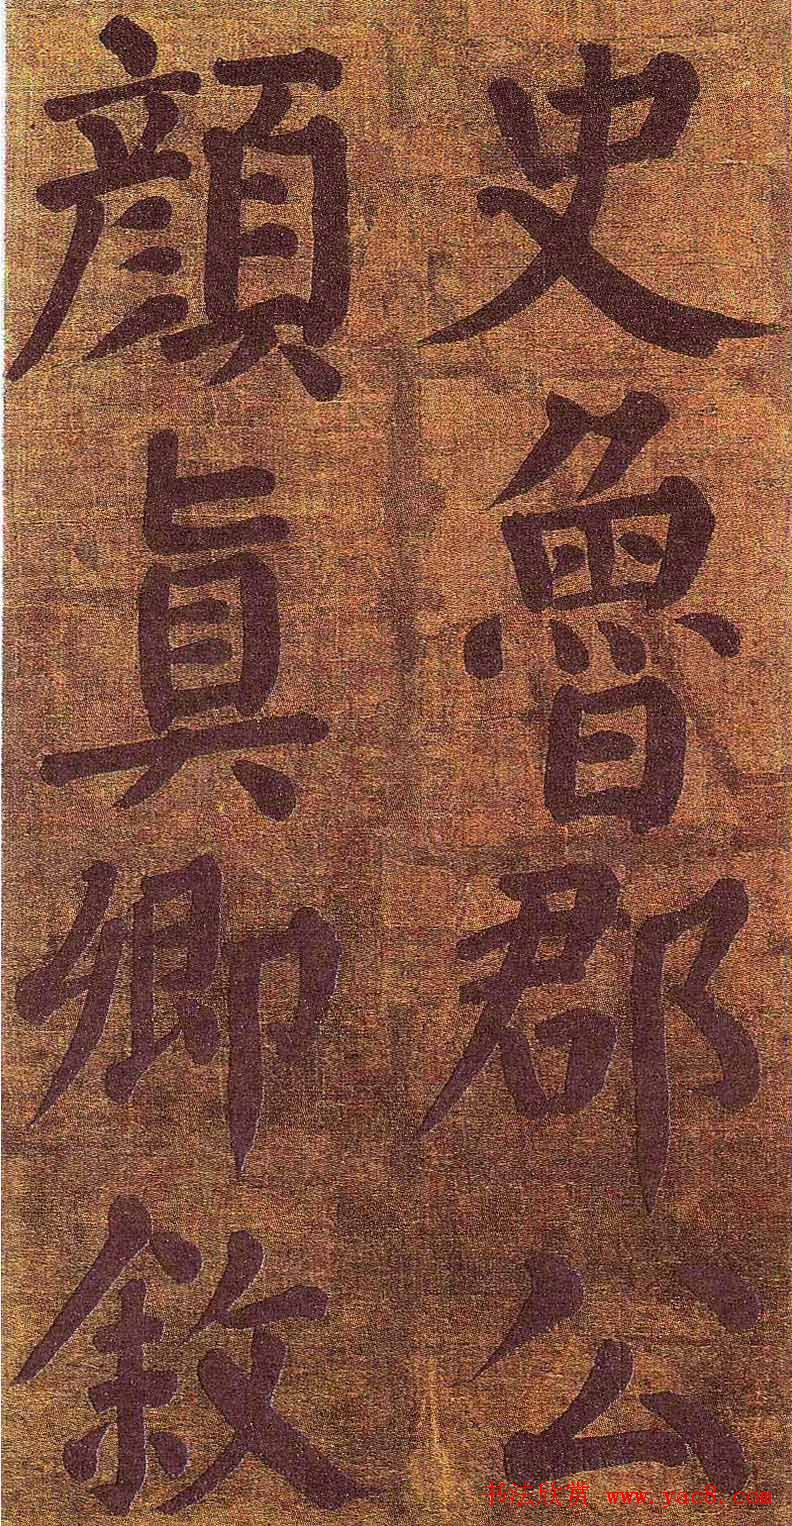 史魯郡公
顏真卿敘
书法欣赏 www.yac8.com